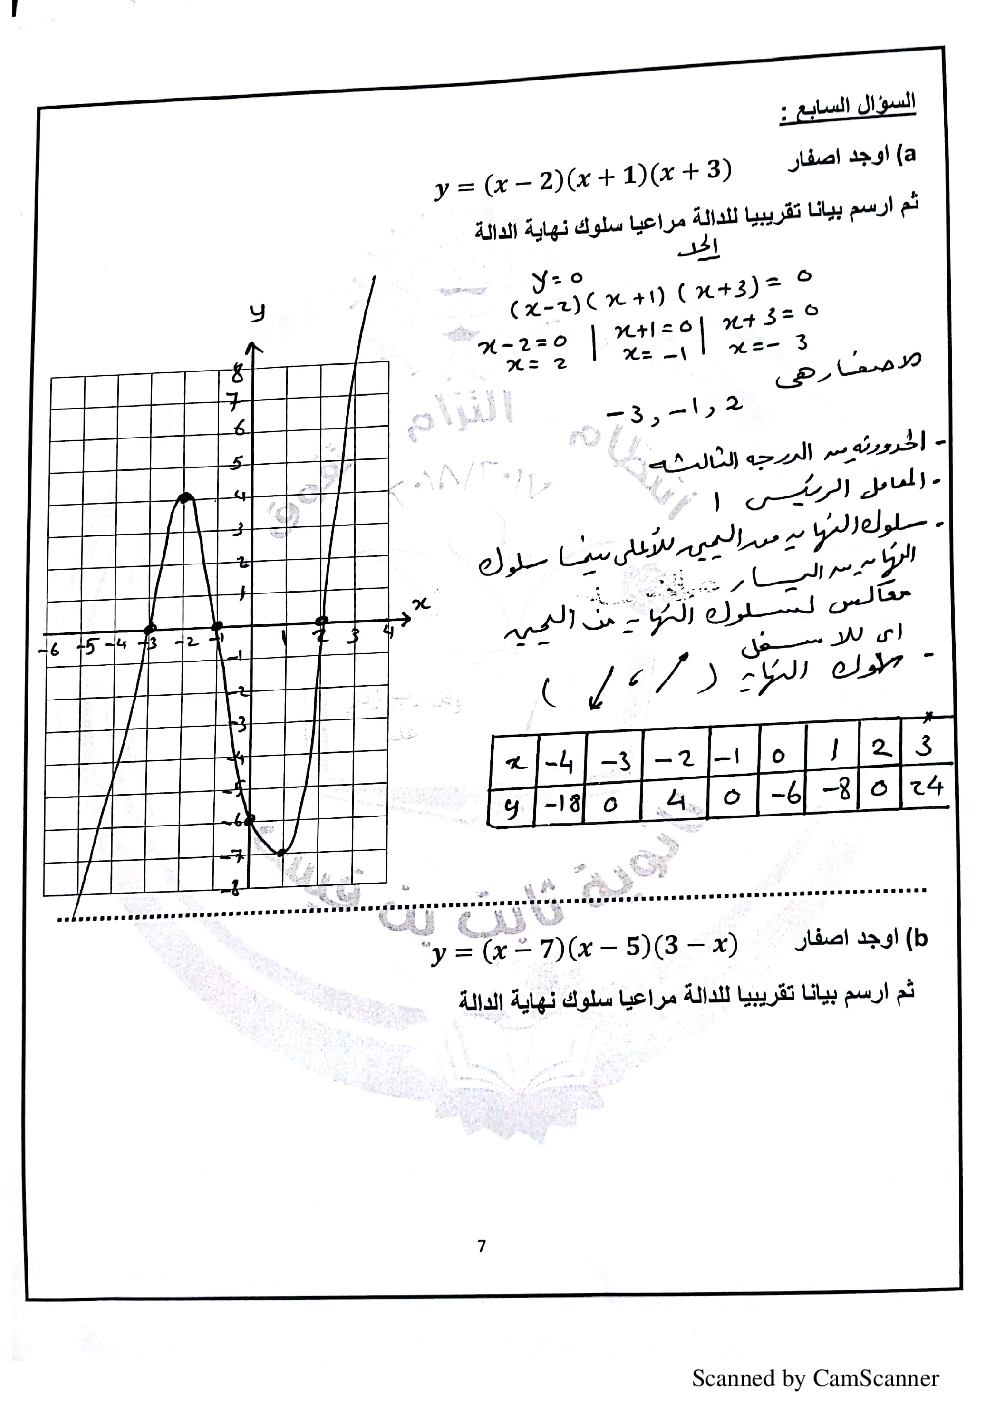 السؤال السابع :
a) اوجد اصفار y = (x − 2)(x + 1)(x + 3)
ثم ارسم بيانا تقريبيا للدالة مراعيا سلوك نهاية الدالة
الحل
y = 0
(x-2)(x+1)(x+3) = 0
x-2=0 | x+1=0 | x+3=0
x=2 | x=-1 | x=-3
الاصفار هى
-3, -1, 2
- الحدودية من الدرجه الثالثه
- المعامل الرئيسى 1
- سلوك النهاية من اليمين للأعلى بينما سلوك
النهاية من اليسار
معاكس لسلوك النهاية من اليمين
اى للاسفل
- سلوك النهاية (↗ ، ↙)
x -4 -3 -2 -1 0 1 2 3
y -18 0 4 0 -6 -8 0 24
y
8
7
6
5
4
3
2
1
x
-6 -5 -4 -3 -2 -1 1 2 3 4
-1
-2
-3
-4
-5
-6
-7
-8
انتظام التزام تفوق
ثانوية ثابت بن قيس
b) اوجد اصفار y = (x − 7)(x − 5)(3 − x)
ثم ارسم بيانا تقريبيا للدالة مراعيا سلوك نهاية الدالة
7
Scanned by CamScanner